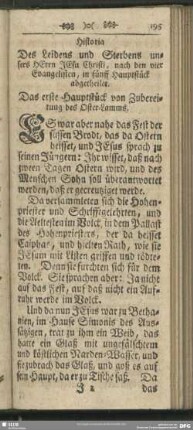 195
Historia
Des Leidens und Sterbens un-
sers HErrn JEsu Christi, nach den vier
Evangelisten, in fünff Hauptstück
abgetheilet.
Das erste Hauptstück von Zuberei-
tung des Oster-Lamms.
ES war aber nahe das Fest der
süssen Brodt, das da Ostern
heisset, und JEsus sprach zu
seinen Jüngern: Ihr wisset, daß nach
zween Tagen Ostern wird, und des
Menschen Sohn soll überantwortet
werden, daß er gecreutziget werde.
Da versammleten sich die Hohen-
priester und Schrifftgelehrten, und
die Aeltesten im Volck, in dem Pallast
des Hohenpriesters, der da heisset
Caiphas, und hielten Rath, wie sie
JEsum mit Listen griffen und tödte-
ten. Denn sie furchten sich für dem
Volck. Sie sprachen aber: Ja nicht
auf das Fest, auf daß nicht ein Auf-
ruhr werde im Volck.
Und da nun JEsus war zu Betha-
nien, im Hause Simonis des Aus-
sätzigen, trat zu ihm ein Weib, das
hatte ein Glaß mit ungefälschtem
und köstlichem Narden-Wasser, und
sie zubrach das Glaß, und goß es auf
sein Haupt, da er zu Tische saß. Da
J 2 das